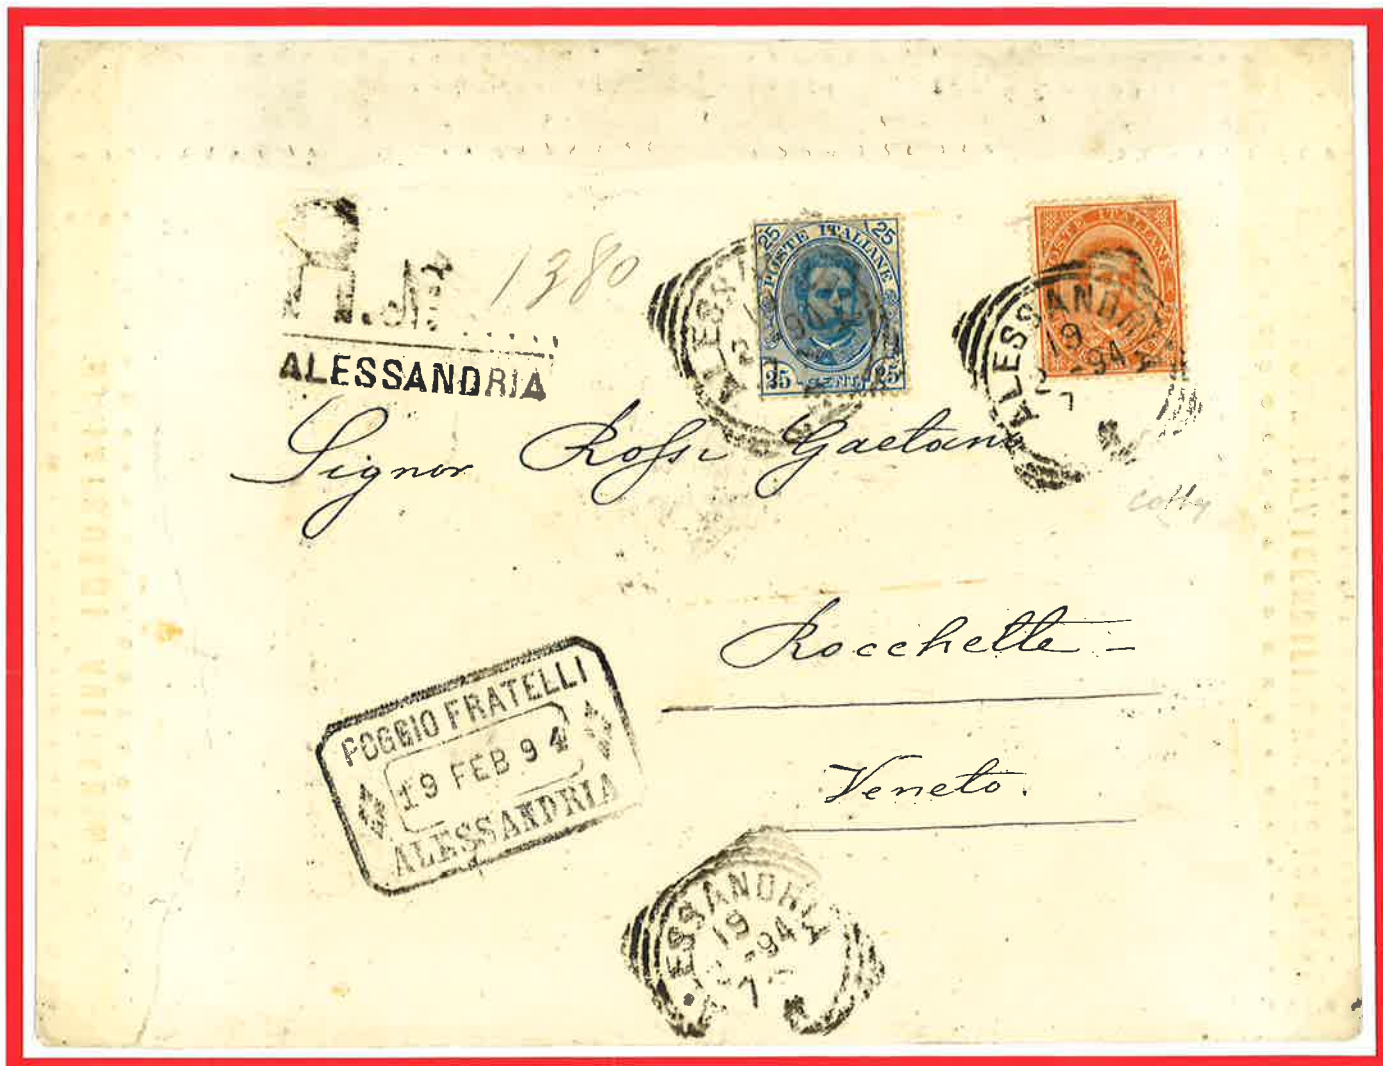 R. N°
1380
ALESSANDRIA
25 25
POSTE ITALIANE
25 CENT. 25
POSTE ITALIANE
ALESSANDRIA
19
2 - 94
7
Signor Rossi Gaetano
Rocchette -
Veneto.
POGGIO FRATELLI
19 FEB 94
ALESSANDRIA
ALESSANDRIA
19
- 94
7